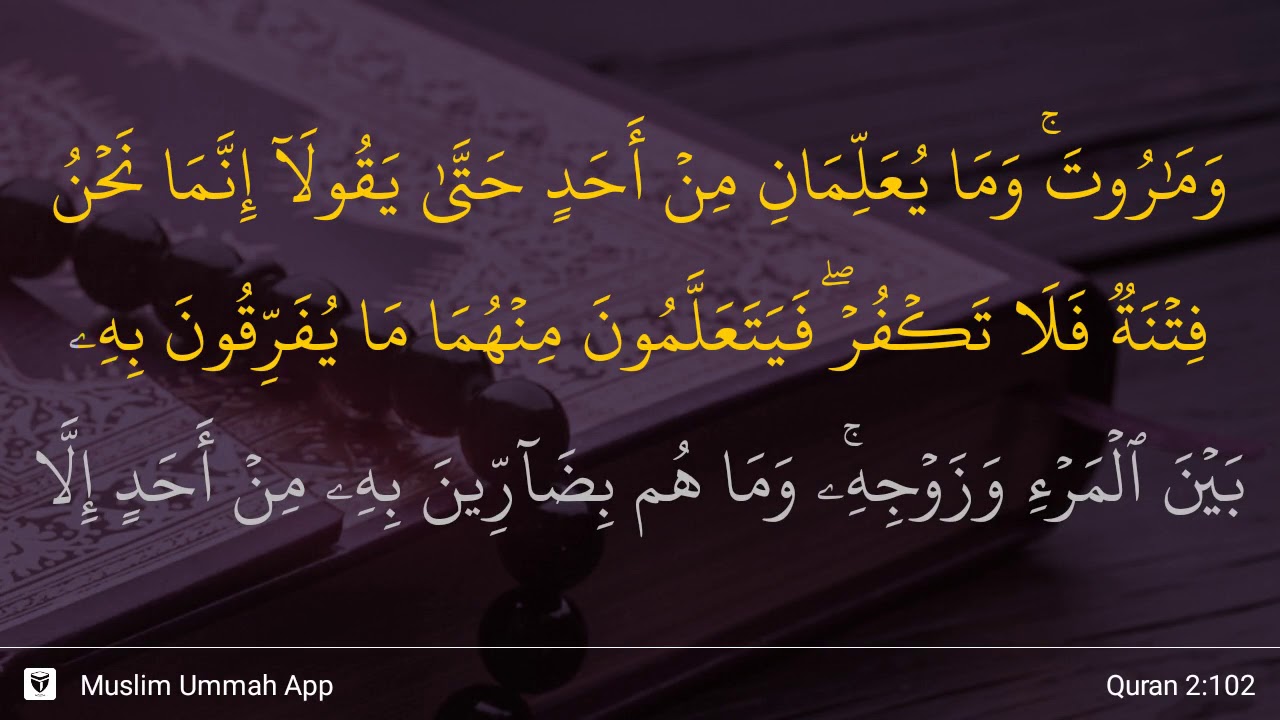 وَمَـٰرُوتَ ۚ وَمَا يُعَلِّمَانِ مِنْ أَحَدٍ حَتَّىٰ يَقُولَآ إِنَّمَا نَحْنُ
فِتْنَةٌ فَلَا تَكْفُرْ ۖ فَيَتَعَلَّمُونَ مِنْهُمَا مَا يُفَرِّقُونَ بِهِۦ
بَيْنَ ٱلْمَرْءِ وَزَوْجِهِۦ ۚ وَمَا هُم بِضَآرِّينَ بِهِۦ مِنْ أَحَدٍ إِلَّا
Muslim Ummah App
Quran 2:102